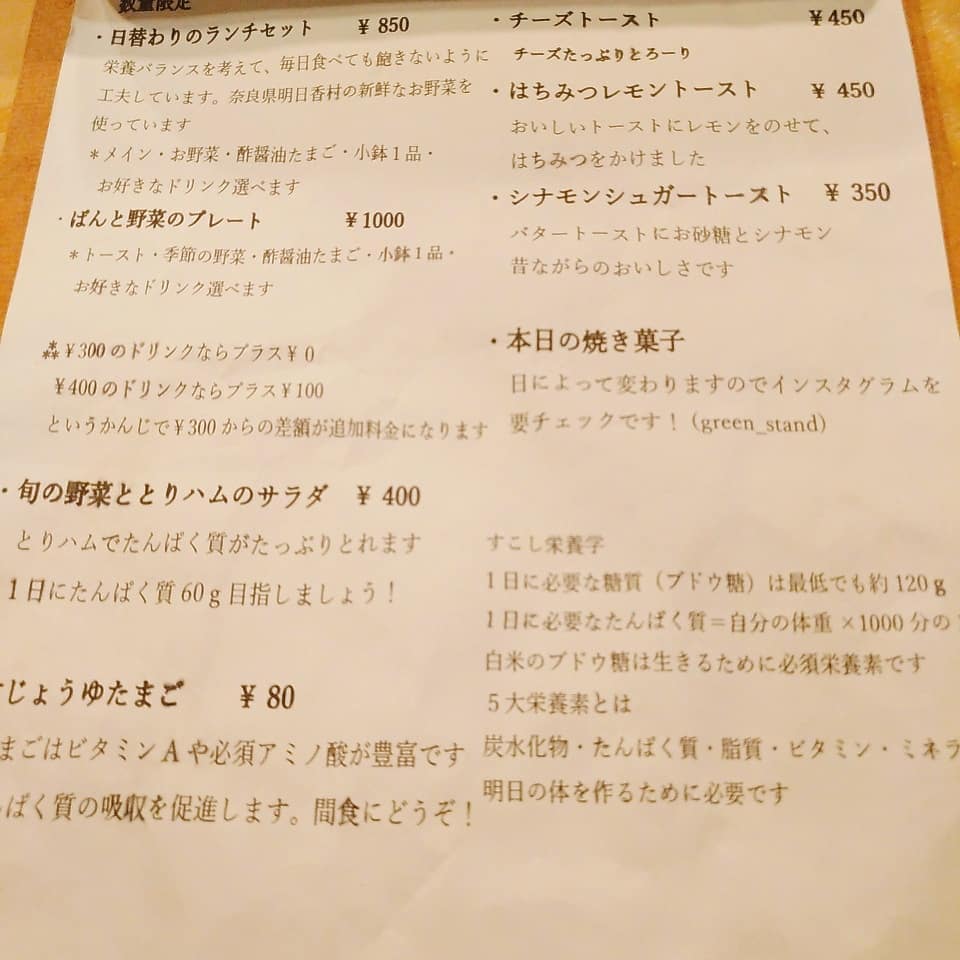 数量限定
・日替わりのランチセット ¥850
栄養バランスを考えて、毎日食べても飽きないように
工夫しています。奈良県明日香村の新鮮なお野菜を
使っています
＊メイン・お野菜・酢醤油たまご・小鉢１品・
お好きなドリンク選べます
・ぱんと野菜のプレート ¥1000
＊トースト・季節の野菜・酢醤油たまご・小鉢１品・
お好きなドリンク選べます
¥300のドリンクならプラス¥0
¥400のドリンクならプラス¥100
というかんじで¥300からの差額が追加料金になります
・旬の野菜ととりハムのサラダ ¥400
とりハムでたんぱく質がたっぷりとれます
１日にたんぱく質60ｇ目指しましょう！
じょうゆたまご ¥80
まごはビタミンAや必須アミノ酸が豊富です
ぱく質の吸収を促進します。間食にどうぞ！
・チーズトースト ¥450
チーズたっぷりとろーり
・はちみつレモントースト ¥450
おいしいトーストにレモンをのせて、
はちみつをかけました
・シナモンシュガートースト ¥350
バタートーストにお砂糖とシナモン
昔ながらのおいしさです
・本日の焼き菓子
日によって変わりますのでインスタグラムを
要チェックです！（green_stand）
すこし栄養学
１日に必要な糖質（ブドウ糖）は最低でも約120ｇ
１日に必要なたんぱく質＝自分の体重×1000分の
白米のブドウ糖は生きるために必須栄養素です
５大栄養素とは
炭水化物・たんぱく質・脂質・ビタミン・ミネラ
明日の体を作るために必要です